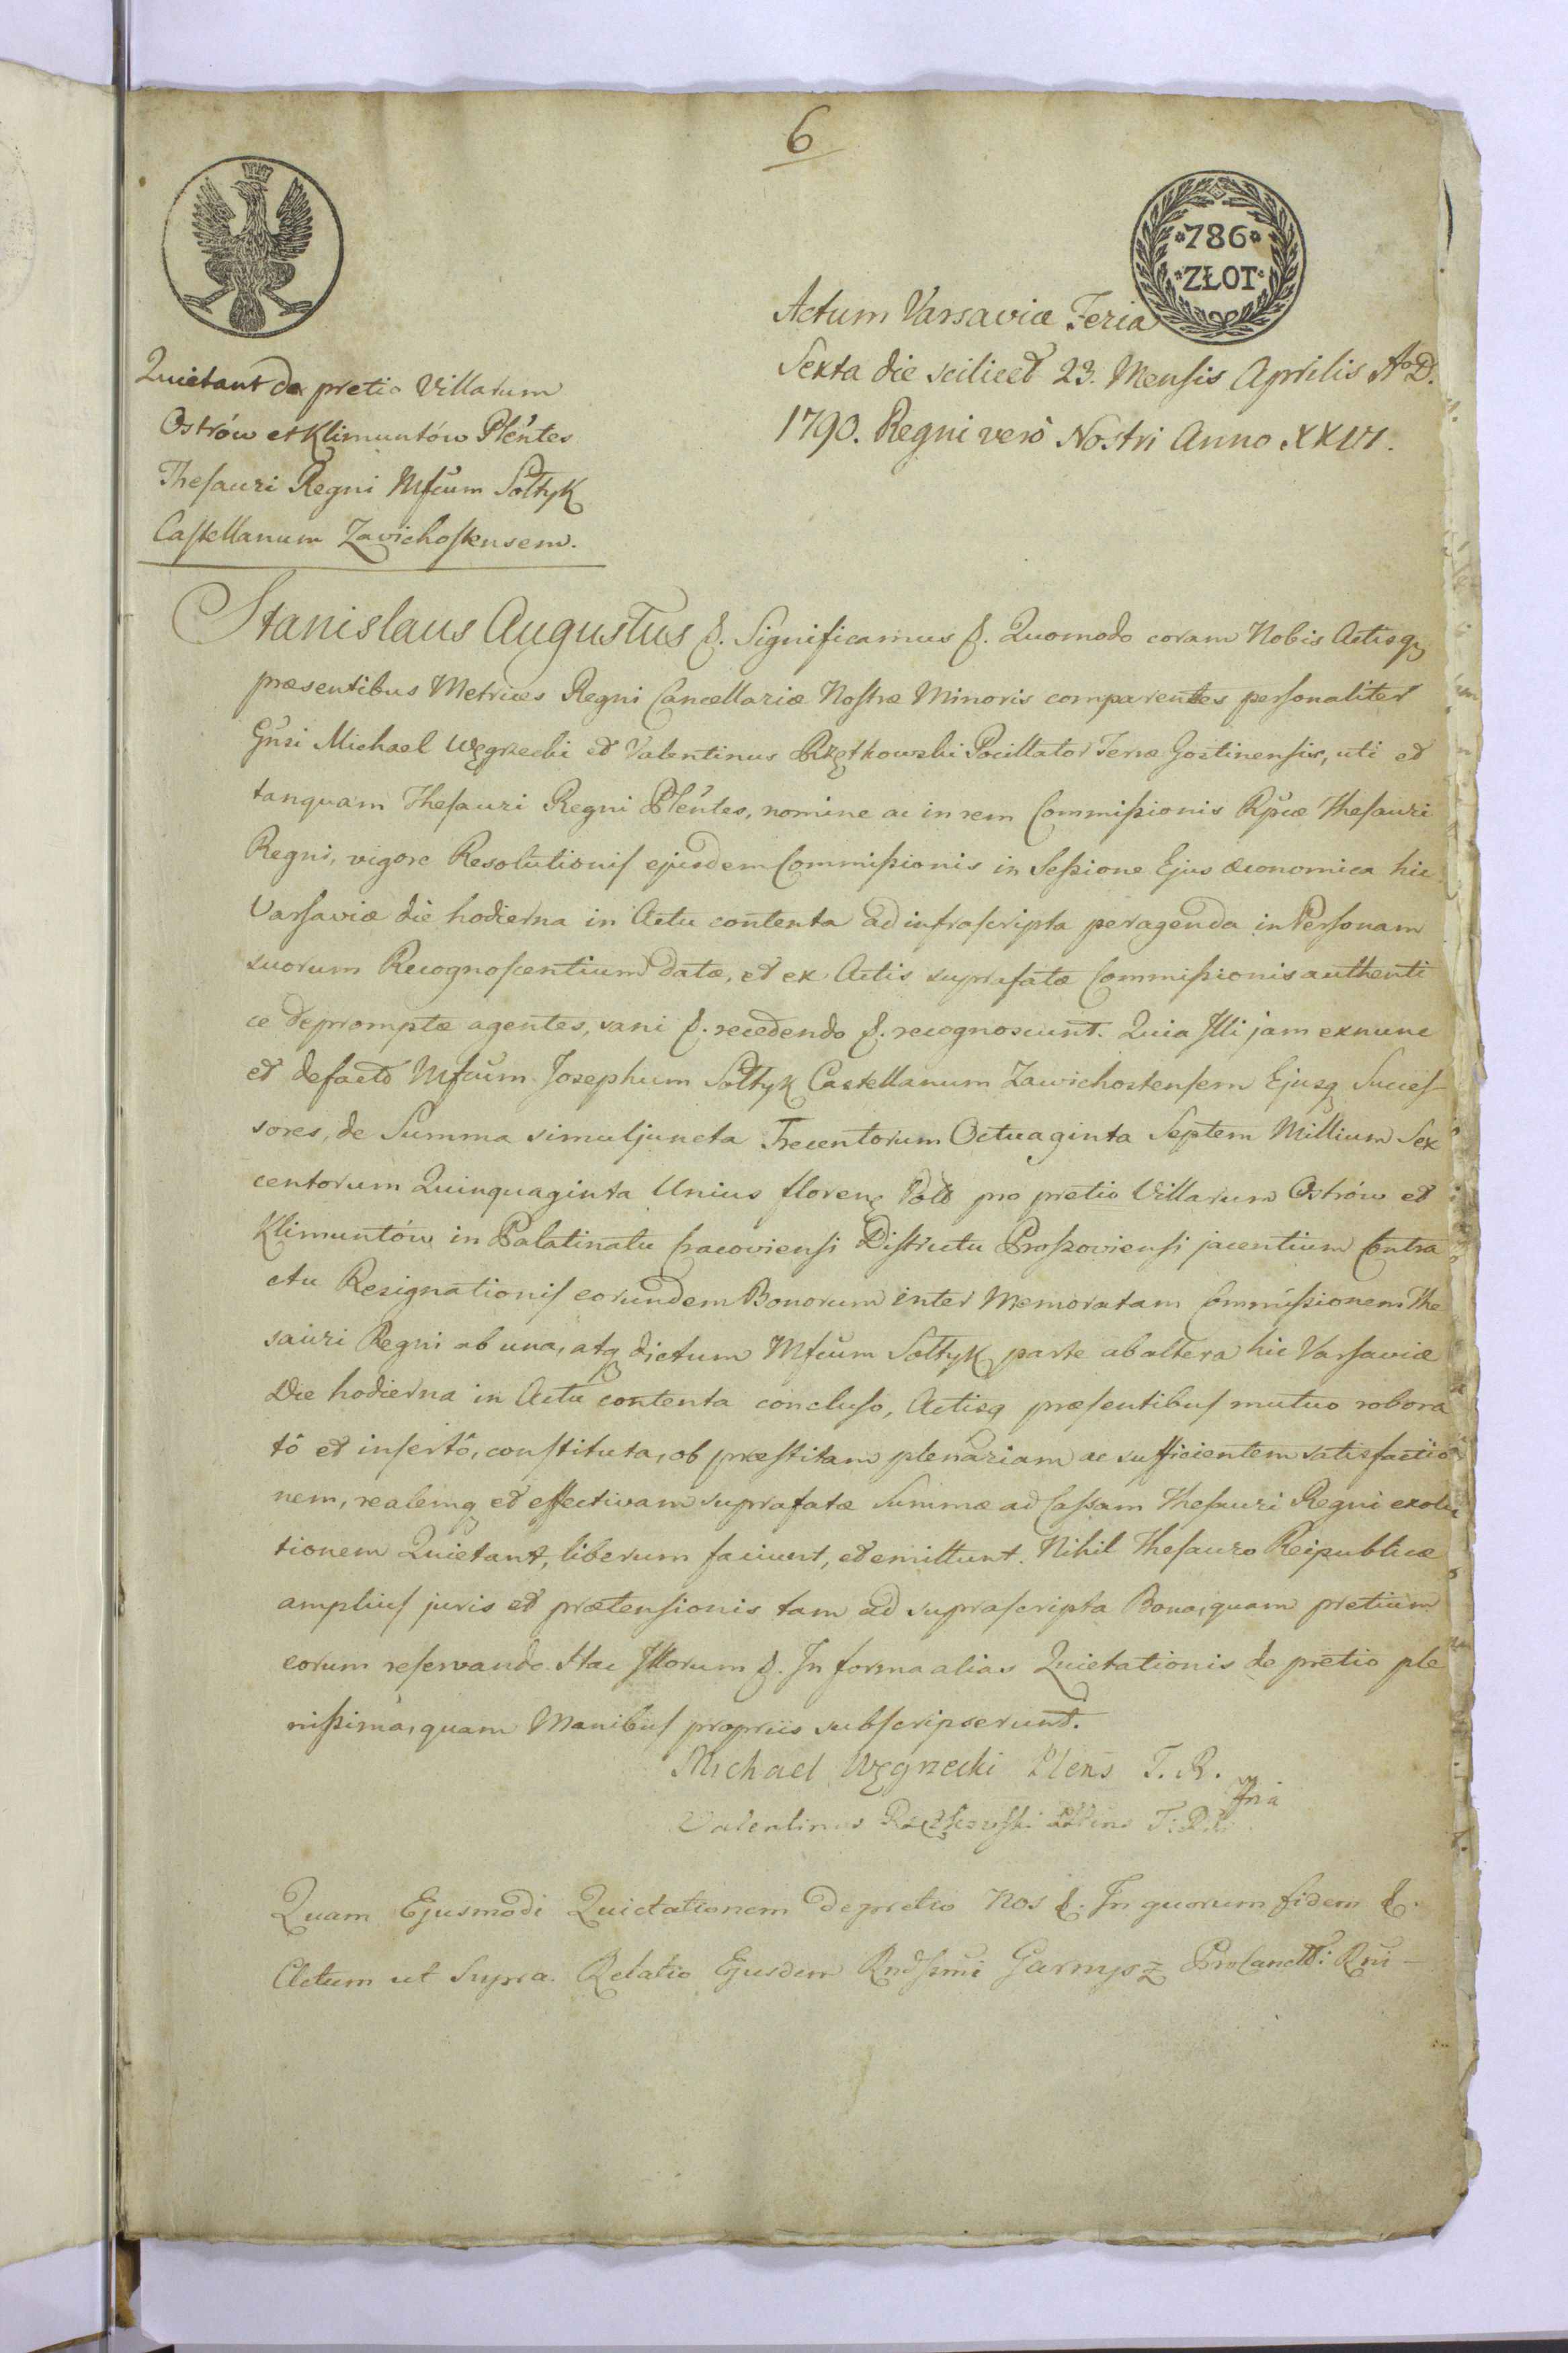 6
*786*
*ZŁOT*
Actum Varsaviæ Feria
Sexta die scilicet 23. Mensis Aprilis Ao D.
1790. Regni verò Nostri Anno XXVI.
Quietant de pretio Villarum
Ostrów et Klimuntów Plentes
Thesauri Regni Mfcum Sołtyk
Castellanum Zavichostensem.
Stanislaus Augustus &. Significamus &. Quomodo coram Nobis Actisq
præsentibus Metrices Regni Cancellariæ Nostræ Minoris comparentes personaliter
Gnsi Michael Węgrzecki et Valentinus Rzętkowski Pocillator Terræ Gostinensis, uti et
tanquam Thesauri Regni Plentes, nomine ac in rem Commissionis Rpcæ Thesauri
Regni, vigore Resolutionis ejusdem Commissionis in Sessione Ejus œconomica hic
Varsaviæ die hodierna in Actu contenta ad infrascripta peragenda in Personam
suorum Recognoscentium datæ, et ex Actis suprafatæ Commissionis authenti
ce depromptæ agentes, sani &. recedendo &. recognoscunt. Quia Illi jam exnunc
et defacto Mfcum Josephum Sołtyk Castellanum Zawichostensem Ejusq Succes-
sores, de Summa simuljuncta Trecentorum Octuaginta Septem Millium Sex
centorum Quinquaginta Unius floren Pol pro pretio Villarum Ostrów et
Klimuntów in Palatinatu Cracoviensi Districtu Proszoviensi jacentium Contra
ctu Resignationis eorundem Bonorum inter Memoratam Commissionem The
sauri Regni ab una, atq dictum Mfcum Sołtyk parte ab altera hic Varsaviæ
Die hodierna in Actu contenta concluso, Actisq præsentibus mutuo robora
tô et insertô, constituta, ob præstitam plenariam ac sufficientem satisfactio
nem, realemq et effectivam suprafatæ Summæ ad Cassam Thesauri Regni exolu
tionem Quietant, liberum faciunt, et emittunt. Nihil Thesauro Reipublicæ
amplius juris et prætensionis tam ad suprascripta Bona, quam pretium
eorum reservando. Hac Illorum &. In forma alias Quietationis de pretio ple
nissimâ, quam Manibus propriis subscripserunt.
Michael Węgrzecki Plens T. R.
Valentinus Rzętkowski Plens T: R:
Quam Ejusmodi Quietationem de pretio Nos &. In quorum fidem &.
Actum ut Supra. Relatio Ejusdem Rndssmi Garnysz ProCancell: Rni –